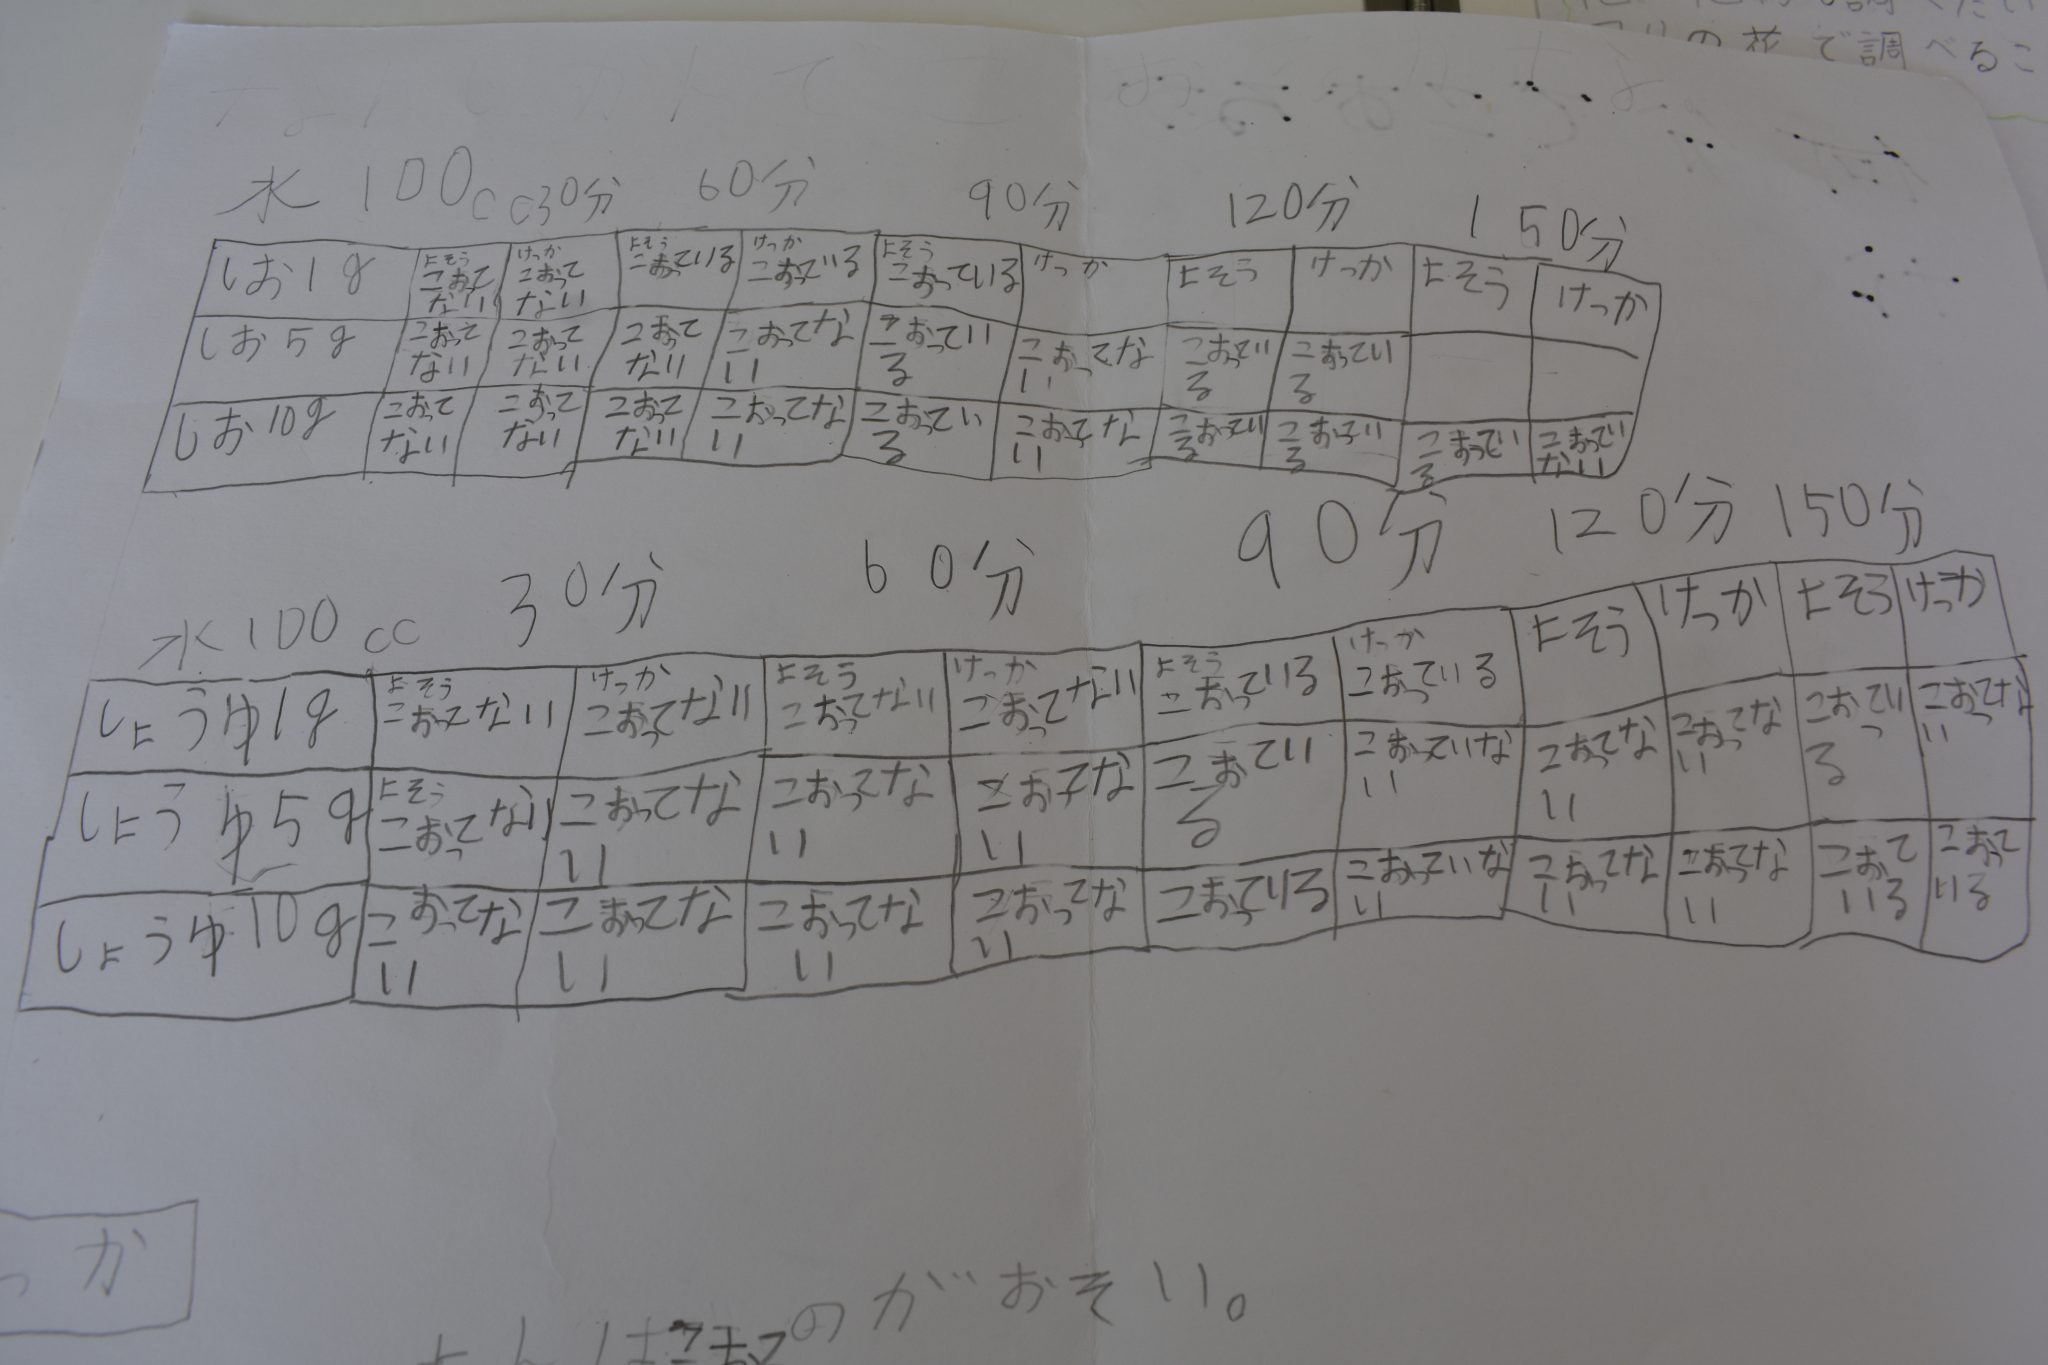 べたい
の花で調べるこ
なんじかんでこ
水100cc 30分 60分 90分 120分 150分
しお1g よそう こおってない けっか こおってない よそう こおっている けっか こおっている よそう こおっている けっか よそう けっか よそう けっか
しお5g こおってない こおってない こおってない こおってない こおっている こおってない こおっている こおっている
しお10g こおってない こおってない こおってない こおってない こおっている こおってない こおっている こおっている こおっている こおっていない
水100cc 30分 60分 90分 120分 150分
しょうゆ1g よそう こおってない けっか こおってない よそう こおってない けっか こおってない よそう こおっている けっか こおっている よそう けっか よそう けっか
しょうゆ5g よそう こおってない こおってない こおってない こおってない こおっている こおっていない こおってない こおってない こおっている こおってない
しょうゆ10g こおってない こおってない こおってない こおってない こおっている こおっていない こおってない こおってない こおっている こおっている
っか
のがおそい。